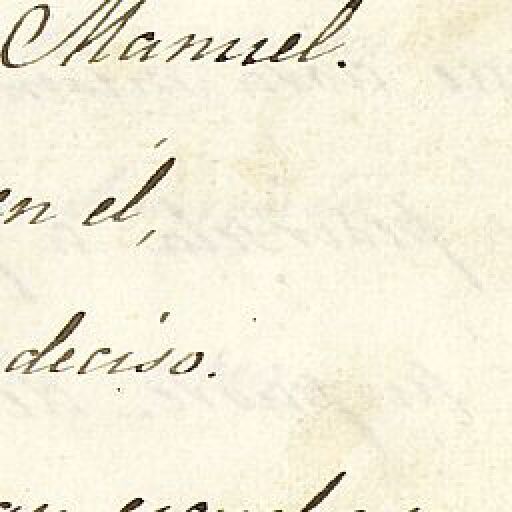 Manuel.
en él,
deciso.